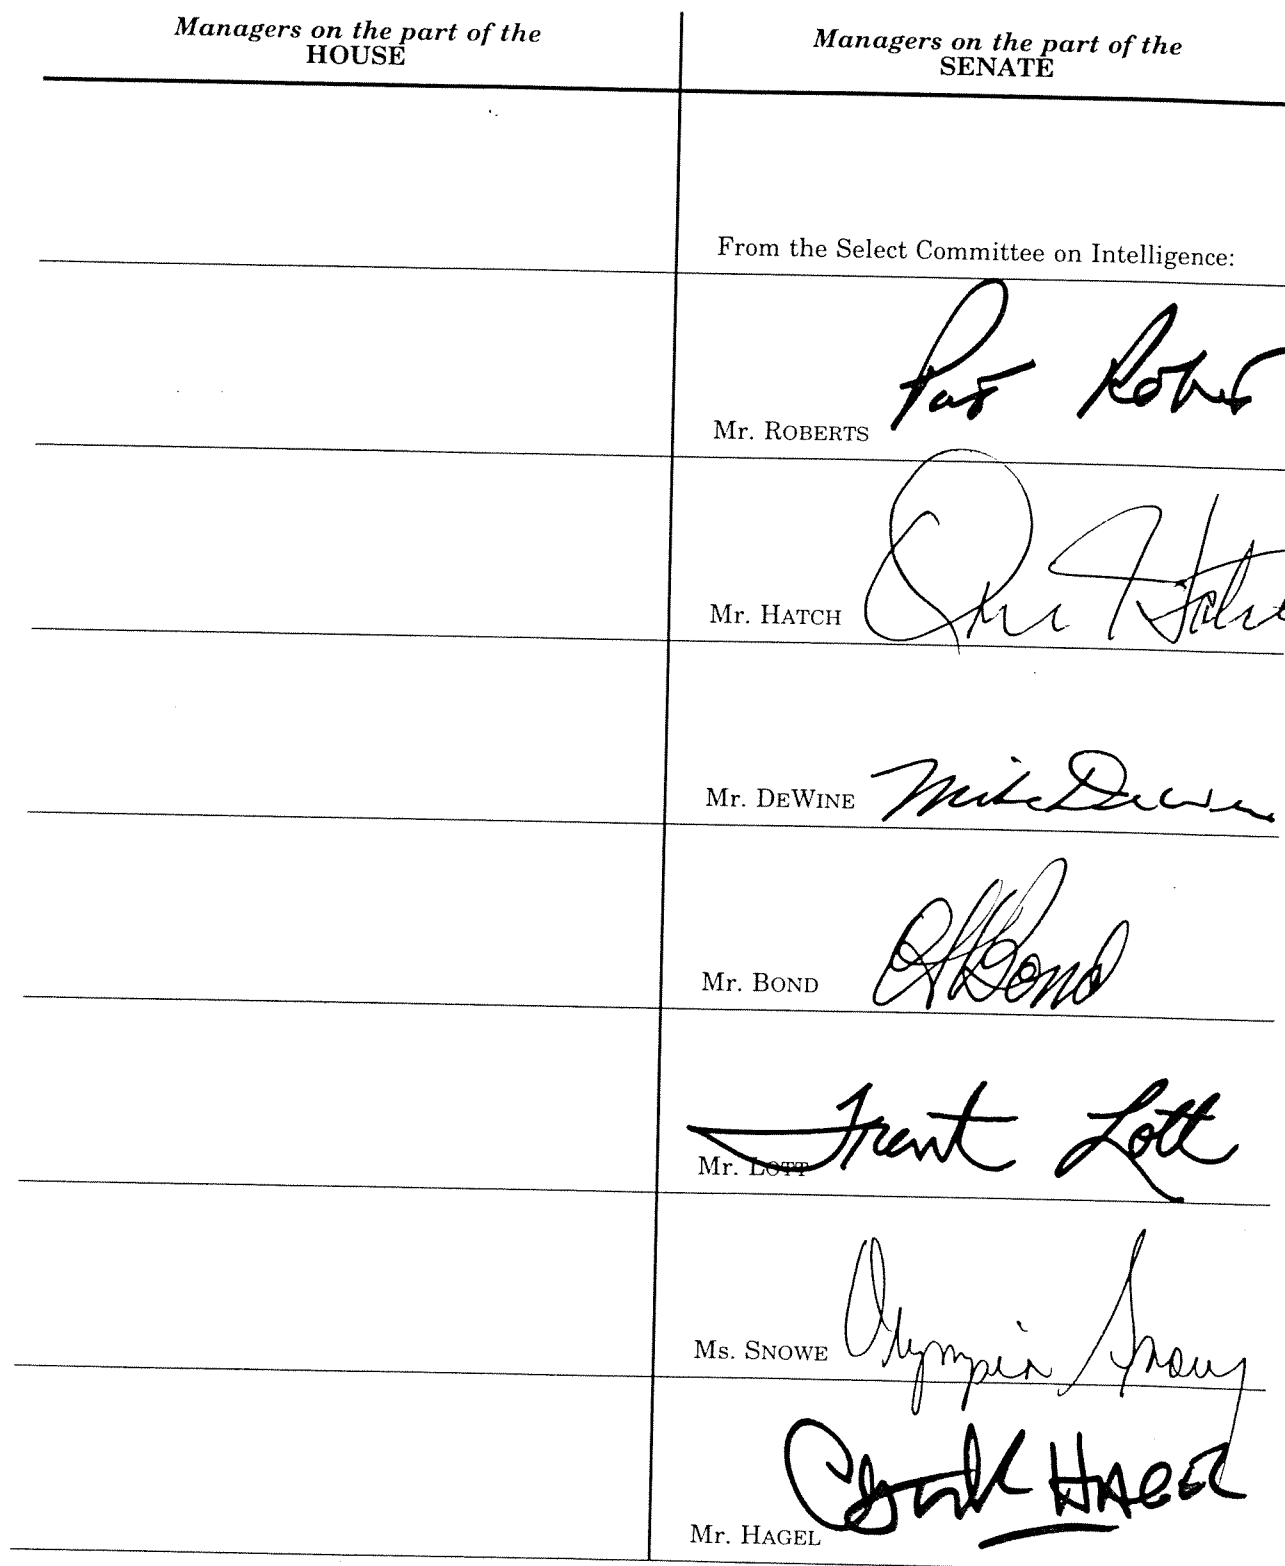 Managers on the part of the
HOUSE
Managers on the part of the
SENATE
From the Select Committee on Intelligence:
Pat Roberts
Mr. ROBERTS
Orrin Hatch
Mr. HATCH
Mr. DEWINE Mike DeWine
Mr. BOND Bond
Trent Lott
Mr. LOTT
Ms. SNOWE Olympia Snowe
Chuck HAGEL
Mr. HAGEL